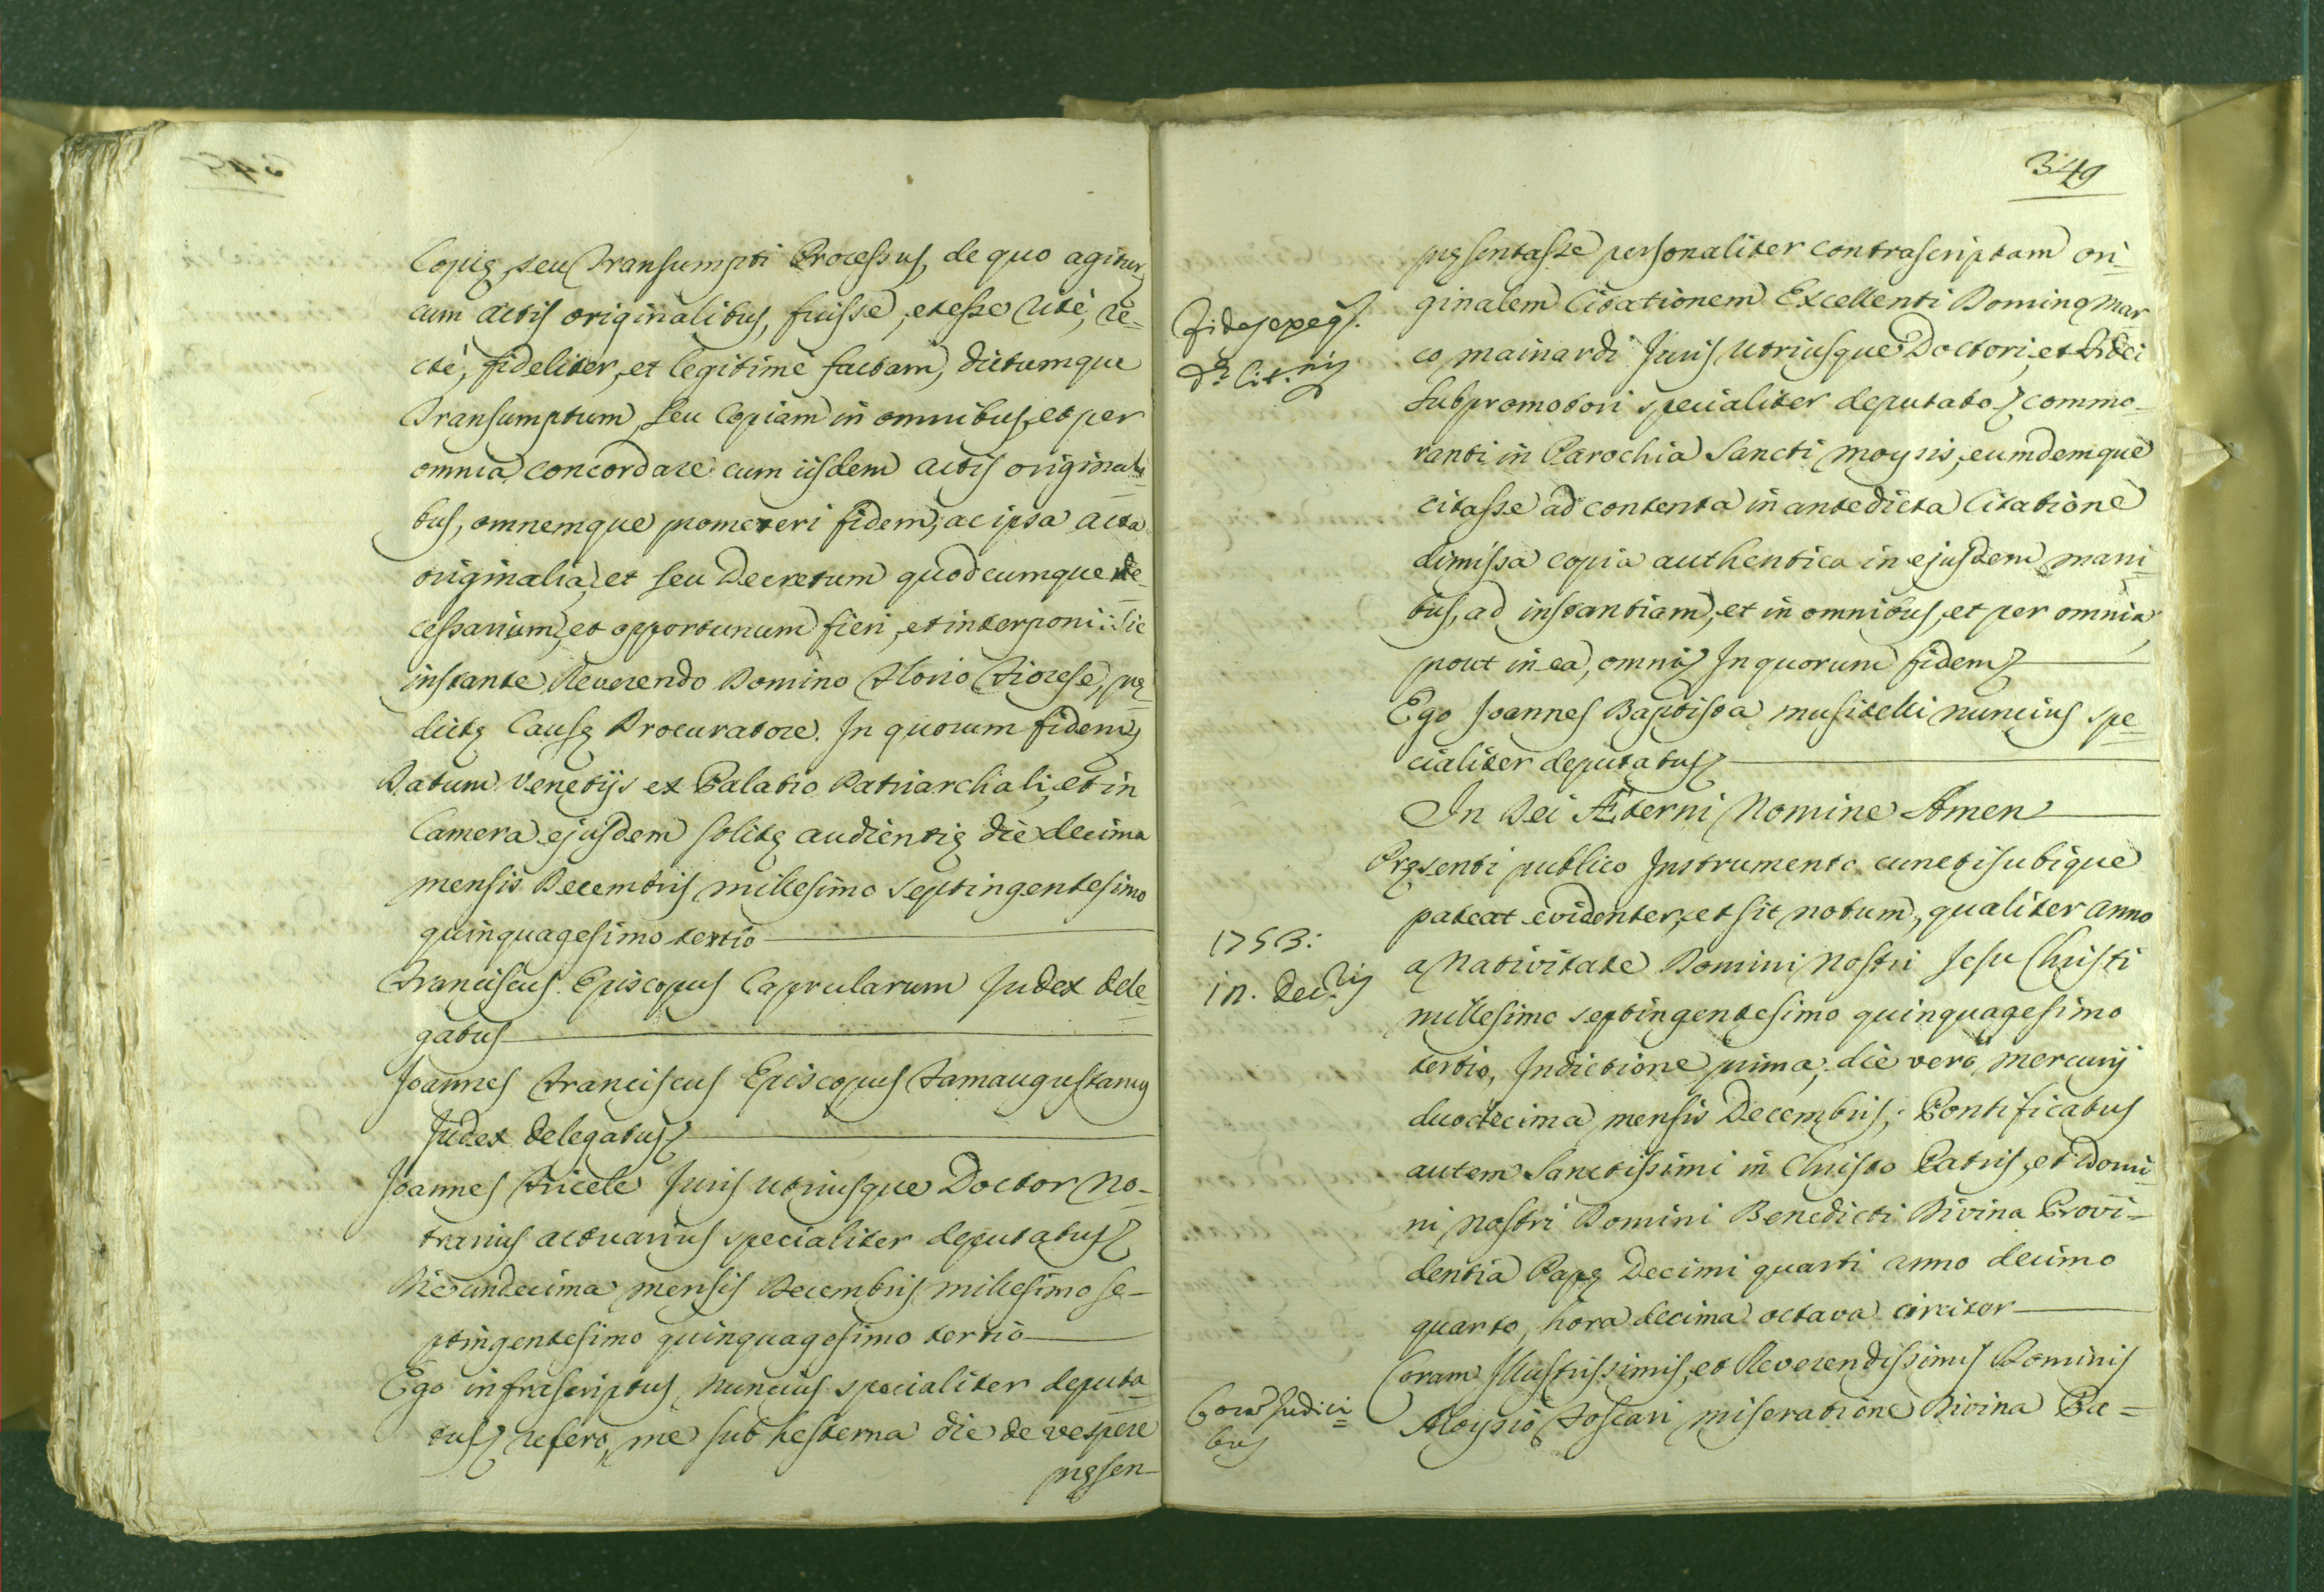 Copię seu Transumpti Processus, de quo agitur,
cum actis originalibus, fuisse, et esse ritè, re-
ctè, fideliter, et legitimè factam, dictumque
Transumptum, seu Copiam in omnibus, et per
omnia concordare cum iisdem actis originali-
bus, omnemque promereri fidem; ac ipsa acta
originalia, et seu Decretum quodcumque ne-
cessarium, et opportunum fieri, et interponi: Sic
instante Reverendo Domino Florio Fiorese, prę-
dictę Causę Procuratore. In quorum fidem
Datum Venetijs ex Palatio Patriarchali, et in
Camera ejusdem solitę audientię die decima
mensis Decembris millesimo septingentesimo
quinquagesimo tertio
Franciscus Episcopus Caprularum Judex dele-
gatus
Joannes Franciscus Episcopus Famaugustanus
Judex delegatus
Joannes Fricele Juris utriusque Doctor No-
tarius actuarius specialiter deputatus
Die undecima mensis Decembris millesimo se-
ptingentesimo quinquagesimo tertio
Ego infrascriptus Nuncius specialiter deputa-
tus refero, me sub hesterna die de vespere
pręsen-
349
pręsentasse personaliter contrascriptam ori-
ginalem Citationem Excellenti Domino Mar
co Mainardi Juris utriusque Doctori, et Fidei
Subpromotori specialiter deputato commo-
ranti in Parochia Sancti Moysis, eumdemque
citasse ad contenta in antedicta Citatione
dimissa copia authentica in ejusdem mani-
bus, ad instantiam, et in omnibus, et per omnia
prout in ea, omni In quorum fidem
Ego Joannes Baptista Musitelli nuncius spe-
cialiter deputatus
In Dei Æterni Nomine Amen
Pręsenti publico Instrumento cunctis ubique
pateat evidenter, et sit notum, qualiter anno
1753:
a Nativitate Domini Nostri Jesu Christi
in. Dec.
millesimo septingentesimo quinquagesimo
tertio, Indictione prima, die vero Mercurij
duodecima mensis Decembris, Pontificatus
autem Sanctissimi in Christo Patris, et Domi-
ni nostri Domini Benedicti Divina Provi-
dentia Papę Decimi quarti anno decimo
quarto, hora decima octava circiter
Coram Illustrissimis, et Reverendissimis Dominis
Coram Judici-
bus
Aloysio Foscari miseratione Divina Pa-